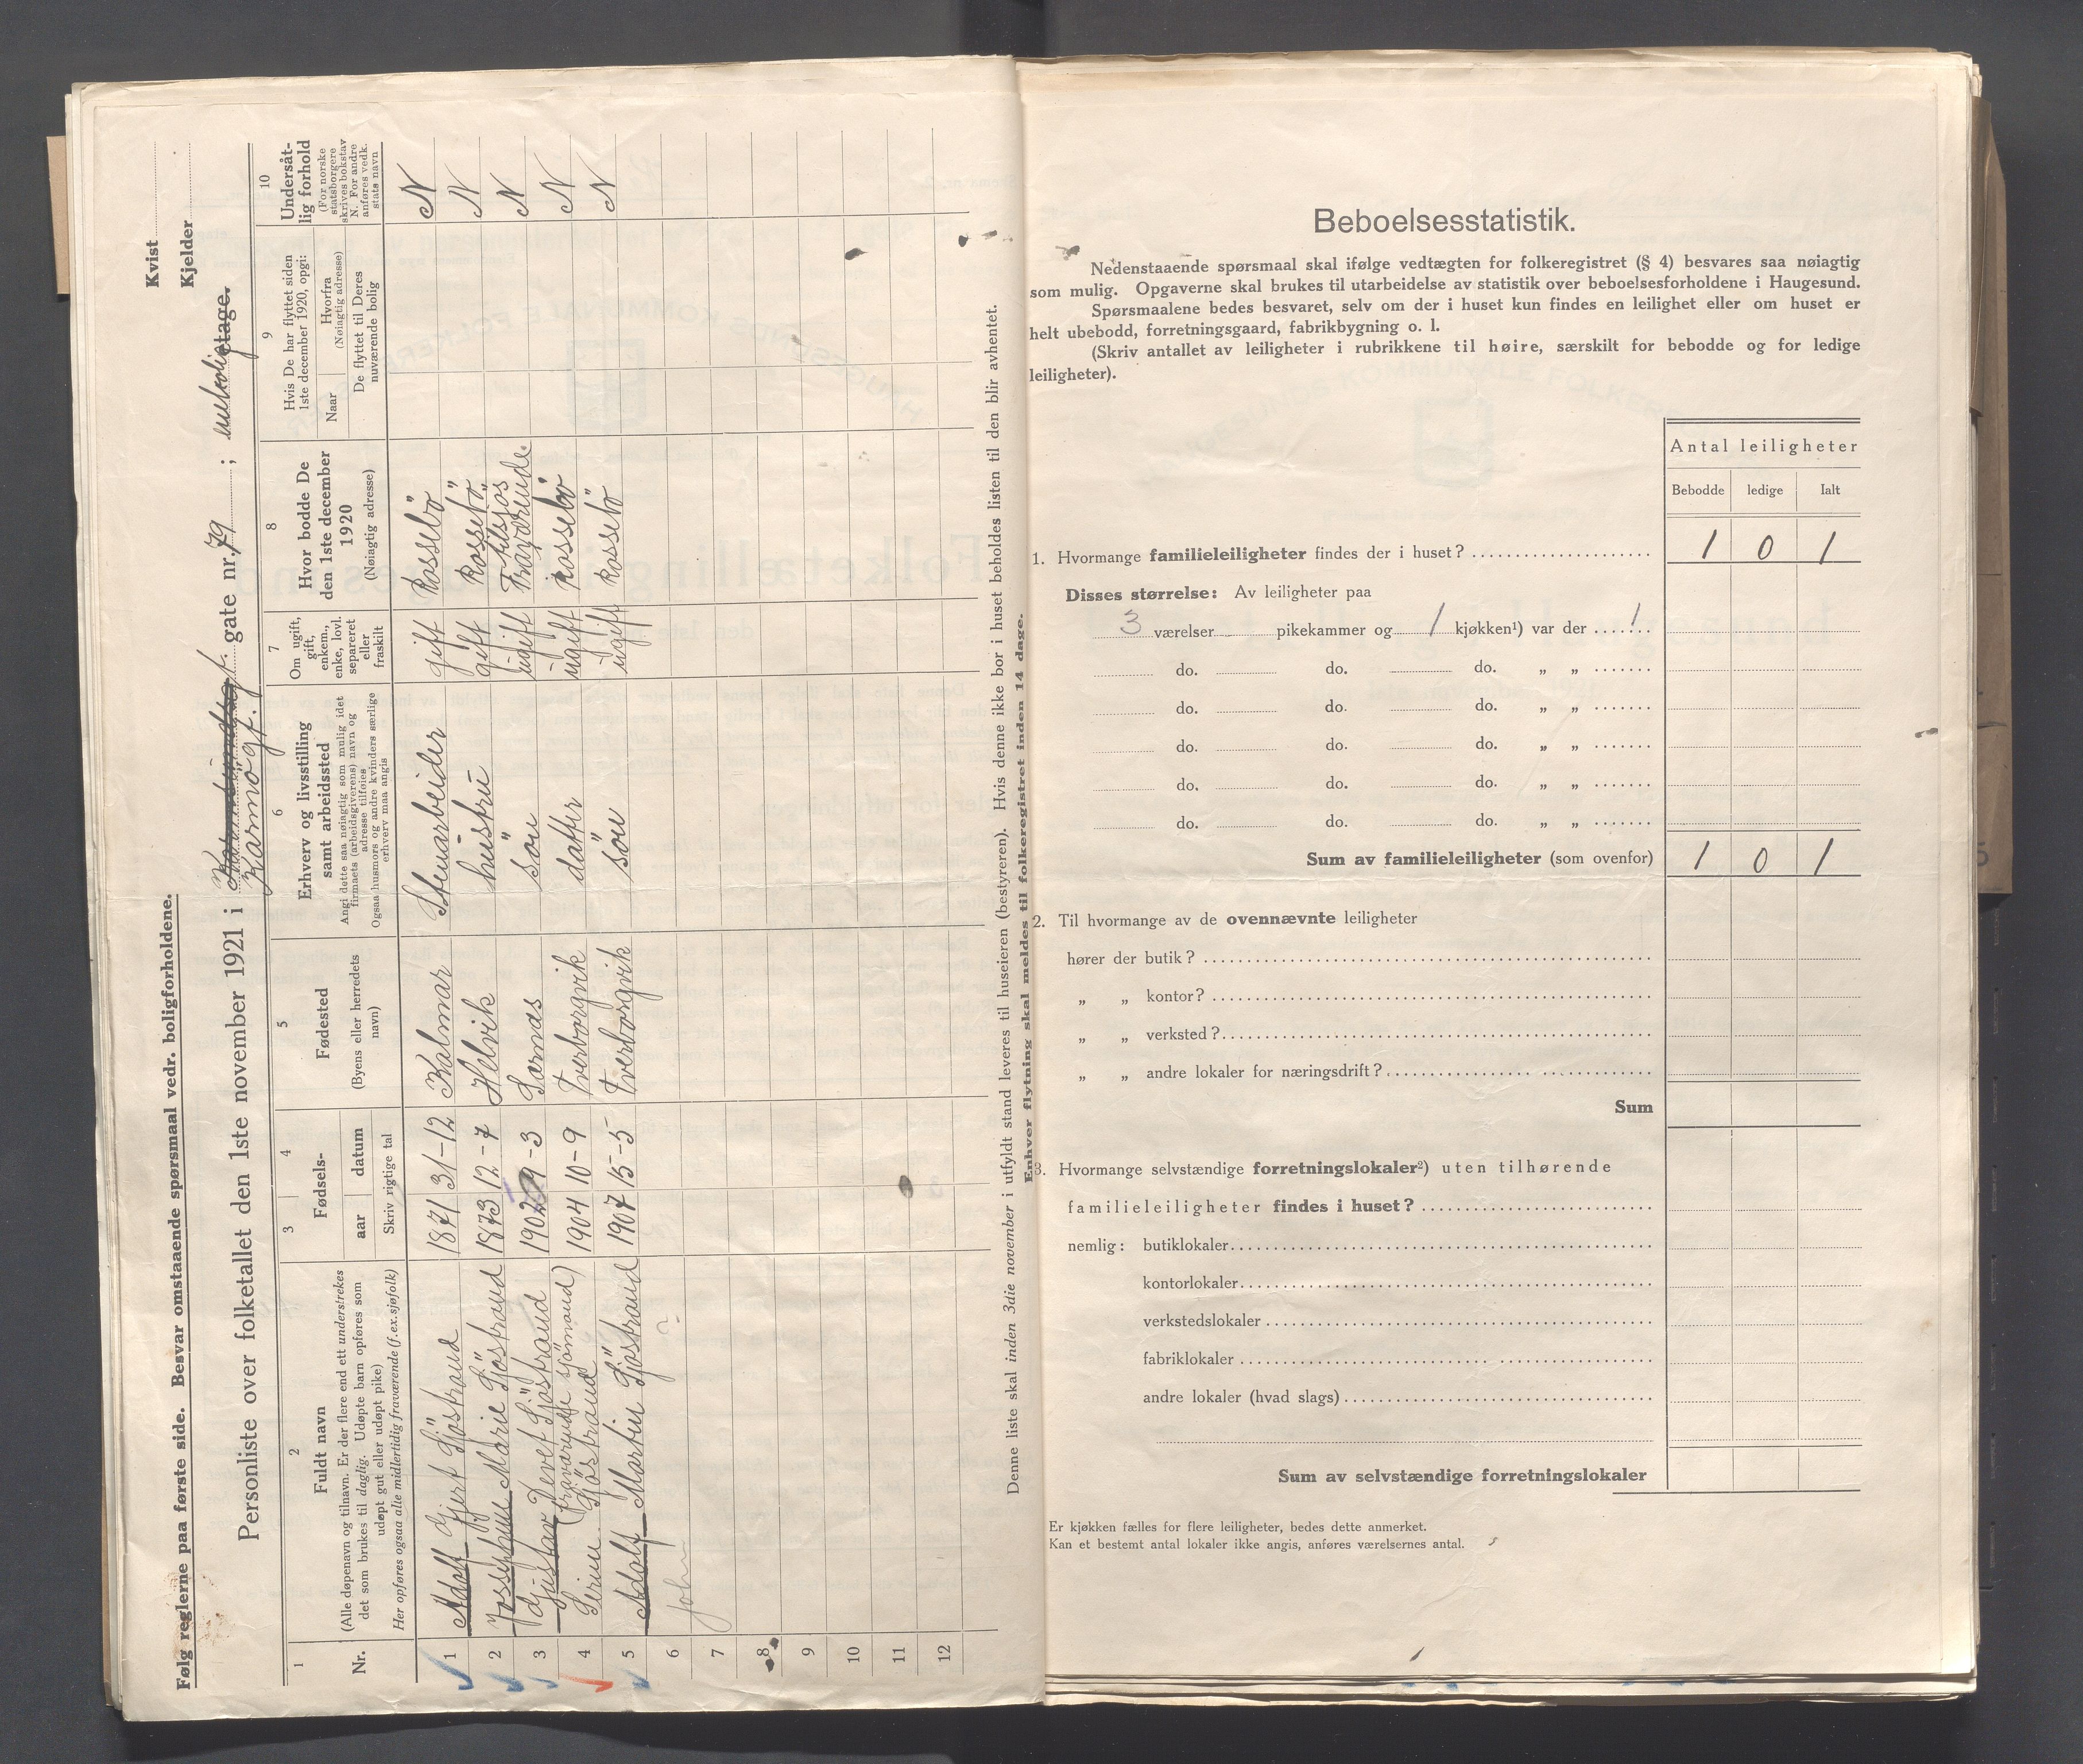 Følg reglerne paa første side. Besvar omstaaende spørsmaal vedr. boligforholdene.
Kvist
Kjelder
Personliste over folketallet den 1ste november 1921 i Karmsundsgt. gate nr. 79 ; etage.
Karmögt.
1 2 3 4 5 6 7 8 9 10
Nr.
Fuldt navn
(Alle døpenavn og tilnavn. Er der flere end ett understrekes
det som brukes til daglig. Udøpte barn opføres som
udøpt gut eller udøpt pike)
Her opføres ogsaa alle midlertidig fraværende (f.ex.sjøfolk)
Fødsels-
aar datum
Skriv rigtige tal
Fødested
(Byens eller herredets
navn)
Erhverv og livsstilling
samt arbeidssted
Angi dette saa nøiagtig som mulig idet
firmaets (arbeidsgiverens) navn og
adresse tilføies
Ogsaa husmors og andre kvinders særlige
erhverv maa angis
Om ugift,
gift,
enkem.,
enke, lovl.
separeret
eller
fraskilt
Hvor bodde De
den 1ste december
1920
(Nøiagtig adresse)
Hvis De har flyttet siden
1ste december 1920, opgi:
Naar
Hvorfra
(Nøiagtig adresse)
De flyttet til Deres
nuværende bolig
Undersåt-
lig forhold
(For norske
statsborgere
skrives bokstav
N. For andre
anføres vedk.
stats navn
1 Adolf Gjert Sjöstrand 1871 31-12 Kalmar Stenarbeider gift Rossebö N
2 Josephine Marie Sjöstrand 1873 12-7 Helvik hustru gift Rossebö N
3 Gustav Devel Sjöstrand 1902 9-3 Sarnas sön ugift Tilsjös N
(fraværende sjömand) Fraværende
4 Sirine Sjöstrand 1904 10-9 Tverborgvik datter ugift Rossebö N
5 Adolf Martin Sjöstrand 1907 15-5 Tverborgvik sön ugift Rossebö N
6 John ?
7
8
9
10
11
12
Denne liste skal inden 3die november i utfyldt stand leveres til huseieren (bestyreren). Hvis denne ikke bor i huset beholdes listen til den blir avhentet.
Enhver flytning skal meldes til folkeregistret inden 14 dage.
Beboelsesstatistik.
Nedenstaaende spørsmaal skal ifølge vedtægten for folkeregistret (§ 4) besvares saa nøiagtig
som mulig. Opgaverne skal brukes til utarbeidelse av statistik over beboelsesforholdene i Haugesund.
Spørsmaalene bedes besvaret, selv om der i huset kun findes en leilighet eller om huset er
helt ubebodd, forretningsgaard, fabrikbygning o. l.
(Skriv antallet av leiligheter i rubrikkene til høire, særskilt for bebodde og for ledige
leiligheter).
Antal leiligheter
Bebodde ledige Ialt
1. Hvormange familieleiligheter findes der i huset? 1 0 1
Disses størrelse: Av leiligheter paa
3 værelser pikekammer og 1 kjøkken¹) var der 1
do. do. do. „ „
do. do. do. „ „
do. do. do. „ „
do. do. do. „ „
do. do. do. „ „
Sum av familieleiligheter (som ovenfor) 1 0 1
2. Til hvormange av de ovennævnte leiligheter
hører der butik?
„ „ kontor?
„ „ verksted?
„ „ andre lokaler for næringsdrift?
Sum
3. Hvormange selvstændige forretningslokaler²) uten tilhørende
familieleiligheter findes i huset?
nemlig: butiklokaler
kontorlokaler
verkstedslokaler
fabriklokaler
andre lokaler (hvad slags)
Sum av selvstændige forretningslokaler
Er kjøkken fælles for flere leiligheter, bedes dette anmerket.
Kan et bestemt antal lokaler ikke angis, anføres værelsernes antal.